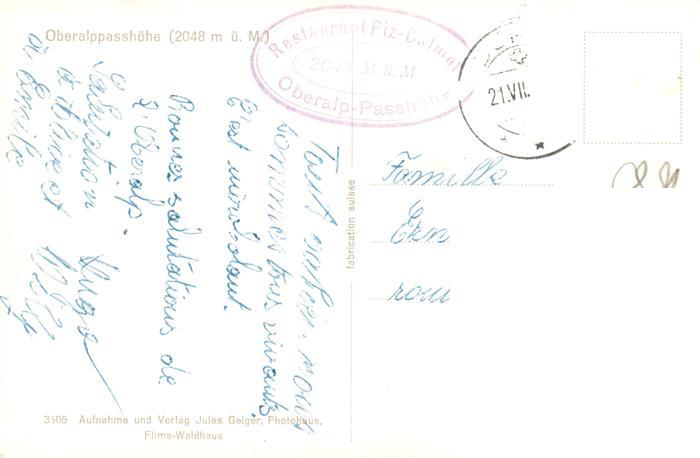 Oberalppasshöhe (2048 m ü. M.)
Restaurant Piz-Calmot
2048 M.ü.M
Oberalp-Passhöhe
21.VII.
nous
sommes tous vivants.
C'est mirobolant.
Bonnes salutations de
l'Oberalp.
Salutation
à Aline et
à Emile
Hugo
Willy
fabrication suisse
Famille
Ern
rou
3505 Aufnahme und Verlag Jules Geiger, Photohaus,
Flims-Waldhaus